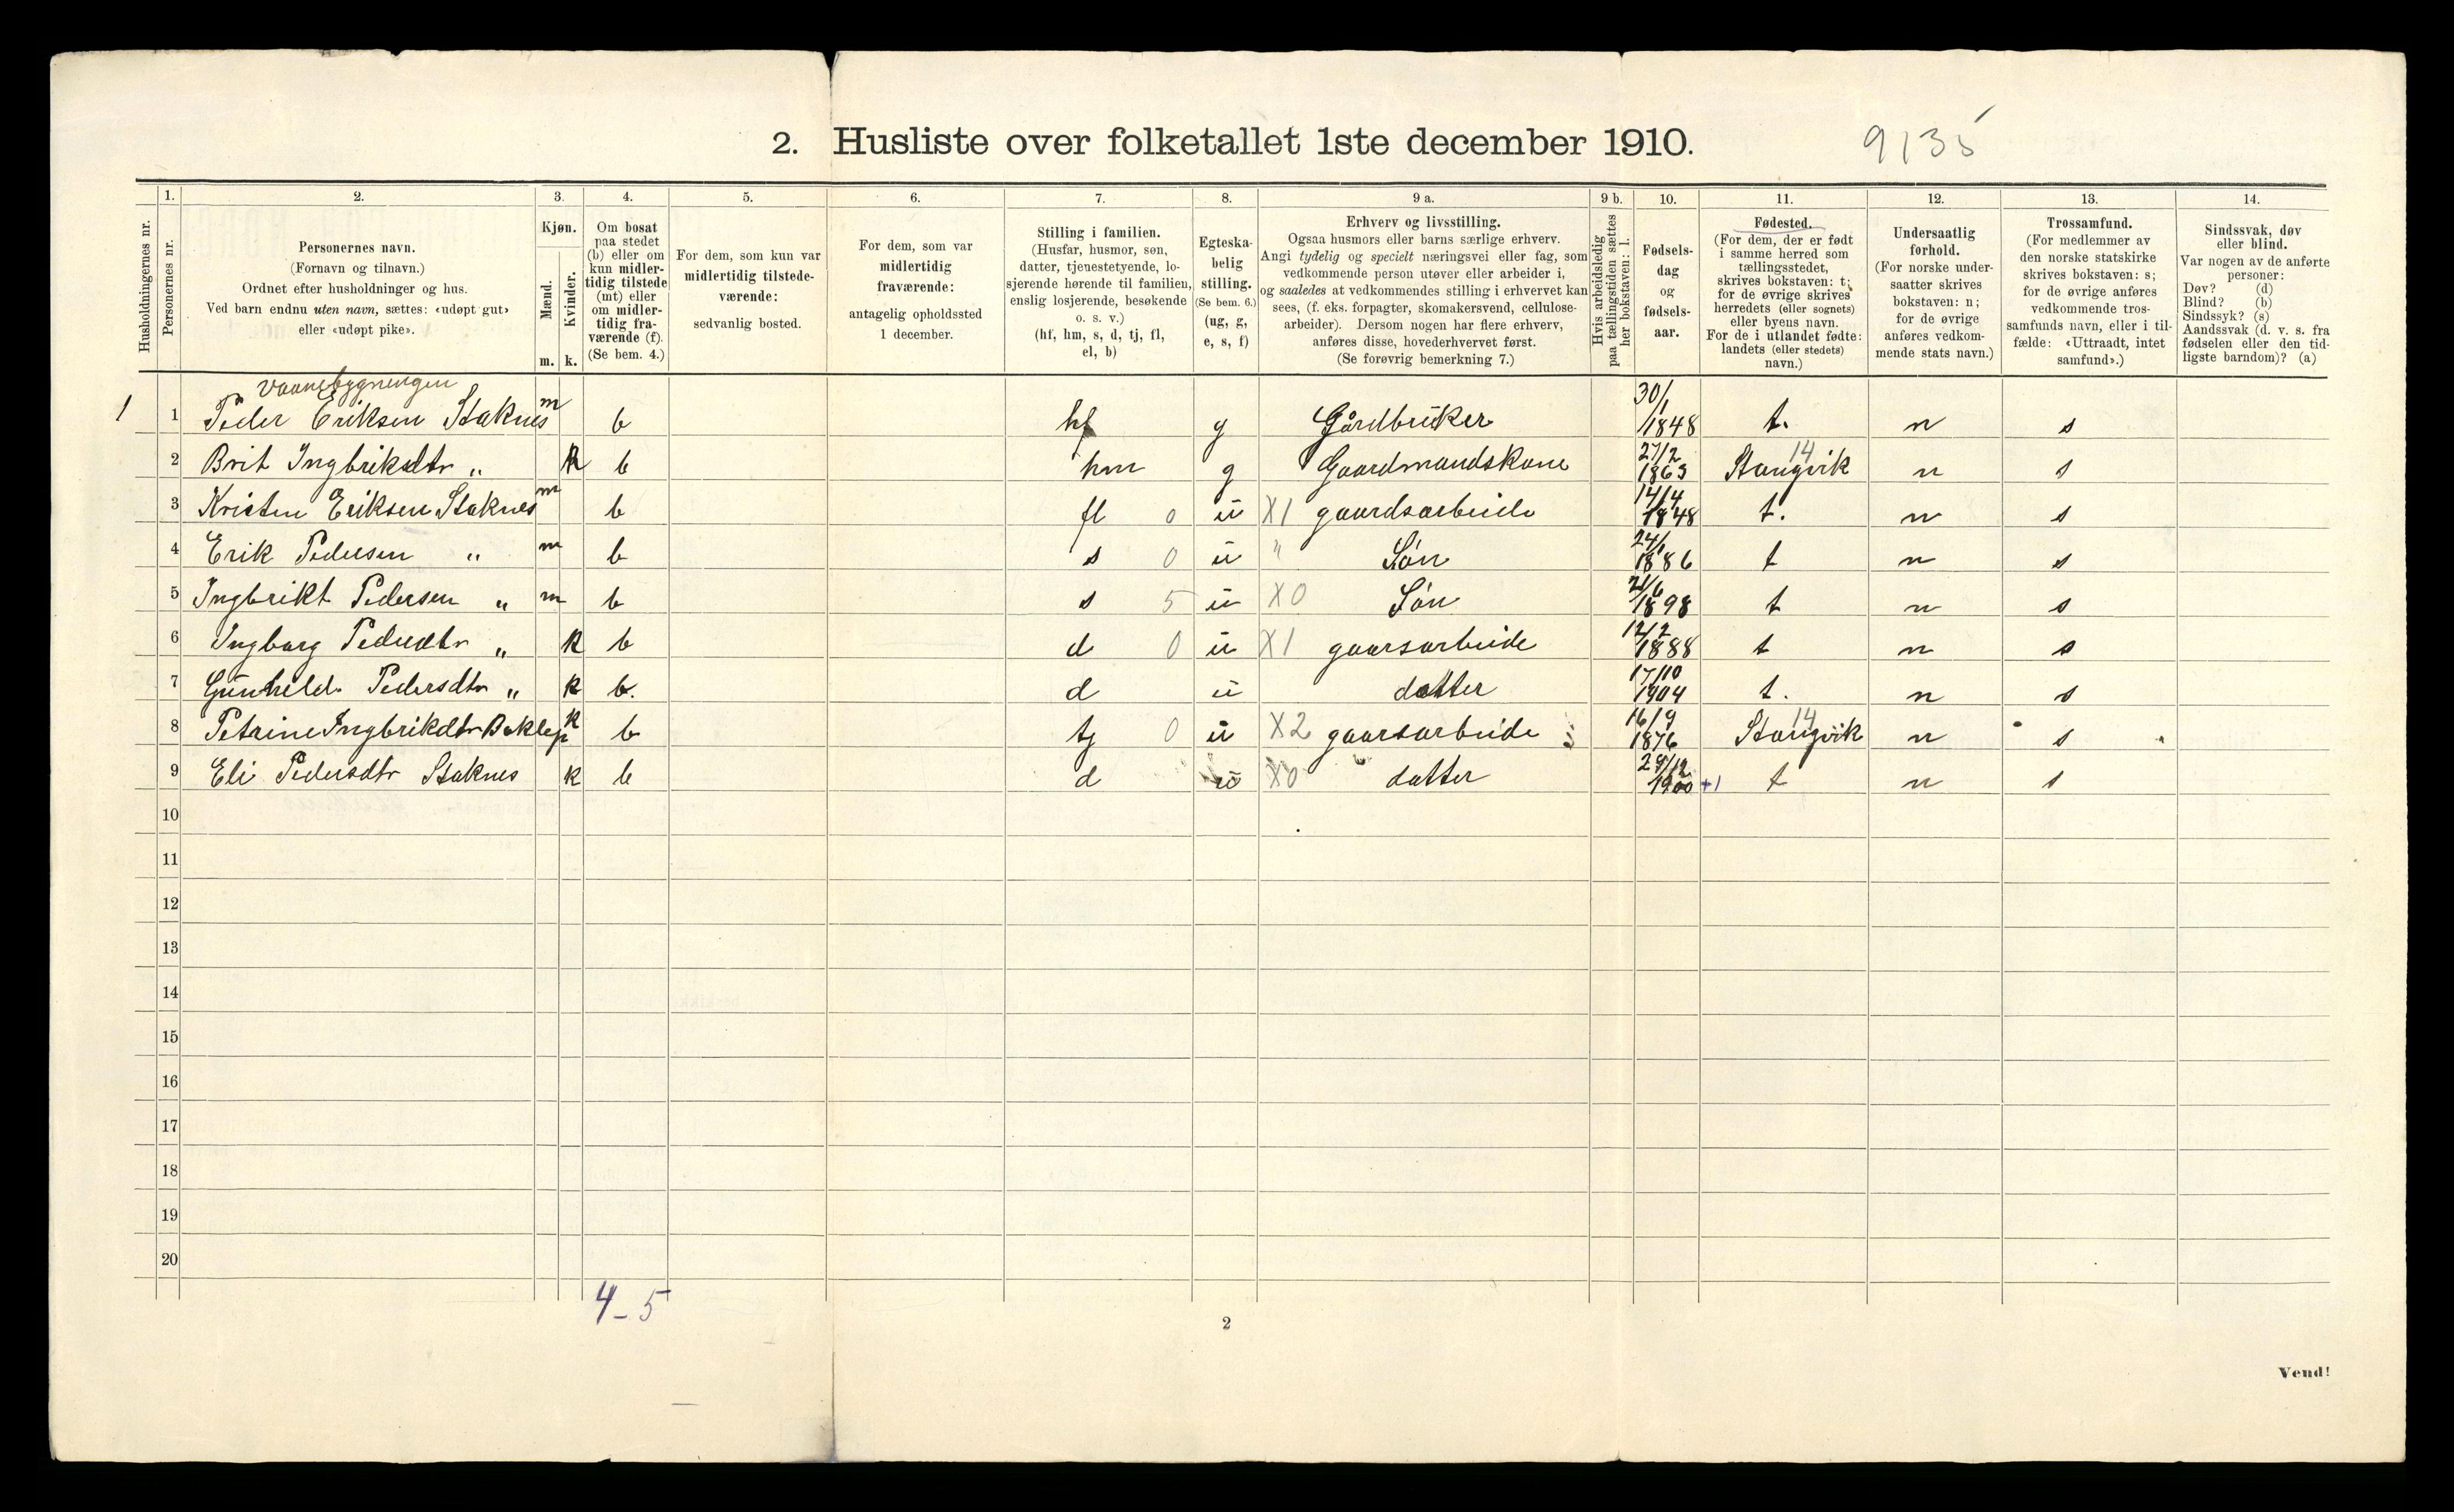 2. Husliste over folketallet 1ste december 1910.
9135
Husholdningernes nr.
1.
Personernes nr.
2.
Personernes navn.
(Fornavn og tilnavn.)
Ordnet efter husholdninger og hus.
Ved barn endnu uten navn, sættes: «udøpt gut»
eller «udøpt pike».
3.
Kjøn.
Mænd.
Kvinder.
m. k.
4.
Om bosat
paa stedet
(b) eller om
kun midler-
tidig tilstede
(mt) eller
om midler-
tidig fra-
værende (f).
(Se bem. 4.)
5.
For dem, som kun var
midlertidig tilstede-
værende:
sedvanlig bosted.
6.
For dem, som var
midlertidig
fraværende:
antagelig opholdssted
1 december.
7.
Stilling i familien.
(Husfar, husmor, søn,
datter, tjenestetyende, lo-
sjerende hørende til familien,
enslig losjerende, besøkende
o. s. v.)
(hf, hm, s, d, tj, fl,
el, b)
8.
Egteska-
belig
stilling.
(Se bem. 6.)
(ug, g,
e, s, f)
9 a.
Erhverv og livsstilling.
Ogsaa husmors eller barns særlige erhverv.
Angi tydelig og specielt næringsvei eller fag, som
vedkommende person utøver eller arbeider i,
og saaledes at vedkommendes stilling i erhvervet kan
sees, (f. eks. forpagter, skomakersvend, cellulose-
arbeider). Dersom nogen har flere erhverv,
anføres disse, hovederhvervet først.
(Se forøvrig bemerkning 7.)
9 b.
Hvis arbeidsledig
paa tællingstiden sættes
her bokstaven: l.
10.
Fødsels-
dag
og
fødsels-
aar.
11.
Fødested.
(For dem, der er født
i samme herred som
tællingsstedet,
skrives bokstaven: t;
for de øvrige skrives
herredets (eller sognets)
eller byens navn.
For de i utlandet fødte:
landets (eller stedets)
navn.)
12.
Undersaatlig
forhold.
(For norske under-
saatter skrives
bokstaven: n;
for de øvrige
anføres vedkom-
mende stats navn.)
13.
Trossamfund.
(For medlemmer av
den norske statskirke
skrives bokstaven: s;
for de øvrige anføres
vedkommende tros-
samfunds navn, eller i til-
fælde: «Uttraadt, intet
samfund».)
14.
Sindssvak, døv
eller blind.
Var nogen av de anførte
personer:
Døv? (d)
Blind? (b)
Sindssyk? (s)
Aandssvak (d. v. s. fra
fødselen eller den tid-
ligste barndom)? (a)
Vaanebygningen
1 1 Peder Eriksen Staknes m b hf g Gårdbruker 30/1 1848 t. n s
2 Brit Ingbrikdtr " k b hm g Gaardmandskone 27/2 1863 Stangvik 14 n s
3 Kristen Eriksen Staknes m b fl 0 u X1 gaardsarbeide 14/4 1848 t. n s
4 Erik Pedersen " m b s 0 u " Søn 24/1 1886 t n s
5 Ingbrikt Pedersen " m b s 5 u X0 Søn 21/6 1898 t n s
6 Ingbarg Pedersdtr " k b d 0 u X1 gaarsarbeide 12/2 1888 t n s
7 Gunhild Pedersdtr " k b. d u datter 17/10 1904 t. n s
8 Petrine Ingbrikdtr Baklep k b tj 0 u X2 gaarsarbeide 16/9 1876 Stangvik 14 n s
9 Eli Pedersdtr Staknes k b d u X0 datter 29/12 1900 +1 t n s
10
11
12
13
14
15
16
17
18
19
20
4-5
2
Vend!